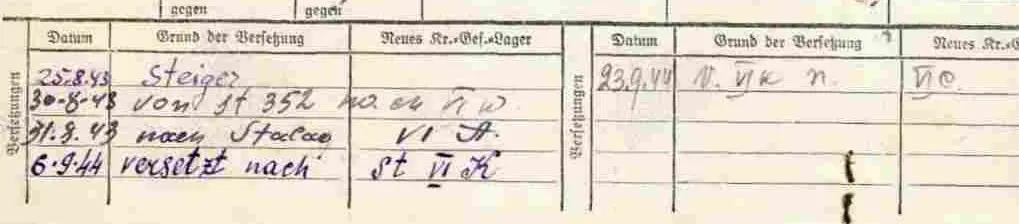 gegen gegen
Datum Grund der Versetzung Neues Kr.-Gef.-Lager Datum Grund der Versetzung Neues Kr.-G
Versetzungen
25.8.43 Steiger
30-8-43 von St 352 VI
31.8.43 nach Stalag VI A.
6.9.44 versetzt nach St VI K
Versetzungen
23.9.44 v. VI K n. VI C.